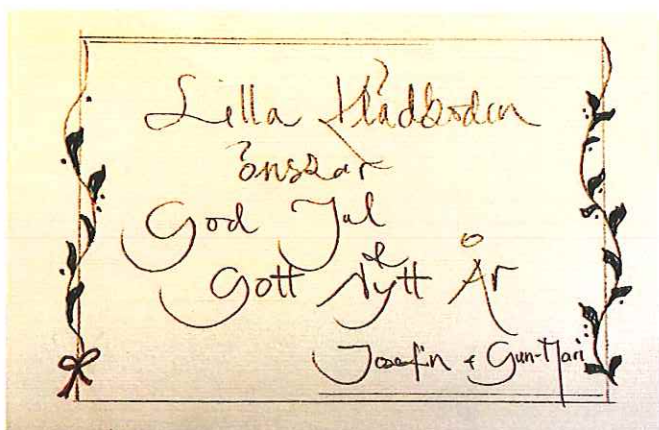 Lilla Klädboden
önskar
God Jul
&
Gott Nytt År
Josefin & Gun-Mari